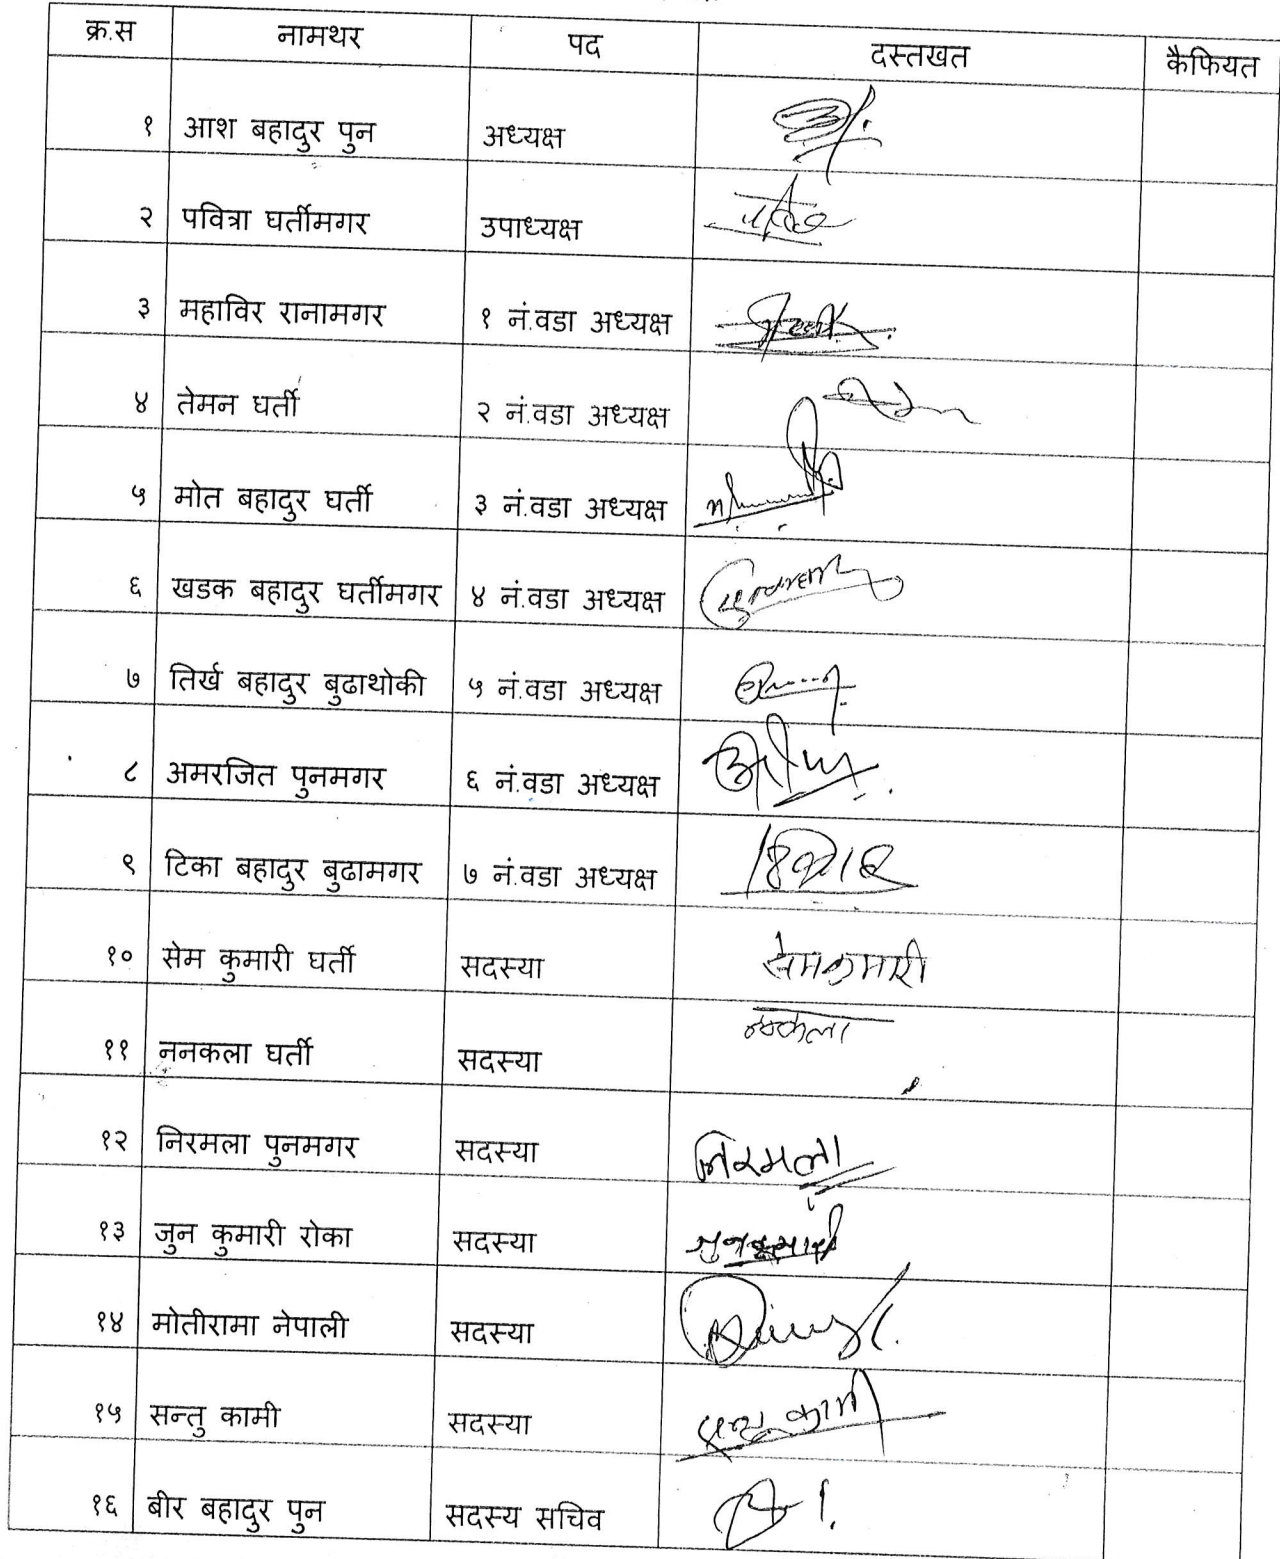 क्र.स नामथर पद दस्तखत कैफियत
१ आश बहादुर पुन अध्यक्ष
२ पवित्रा घर्तीमगर उपाध्यक्ष
३ महाविर रानामगर १ नं.वडा अध्यक्ष
४ तेमन घर्ती २ नं.वडा अध्यक्ष
५ मोत बहादुर घर्ती ३ नं.वडा अध्यक्ष
६ खडक बहादुर घर्तीमगर ४ नं.वडा अध्यक्ष
७ तिर्ख बहादुर बुढाथोकी ५ नं.वडा अध्यक्ष
८ अमरजित पुनमगर ६ नं.वडा अध्यक्ष
९ टिका बहादुर बुढामगर ७ नं.वडा अध्यक्ष
१० सेम कुमारी घर्ती सदस्या सेमकुमारी
११ ननकला घर्ती सदस्या
१२ निरमला पुनमगर सदस्या निरमला
१३ जुन कुमारी रोका सदस्या जुनकुमारी
१४ मोतीरामा नेपाली सदस्या
१५ सन्तु कामी सदस्या सन्तु कामी
१६ बीर बहादुर पुन सदस्य सचिव